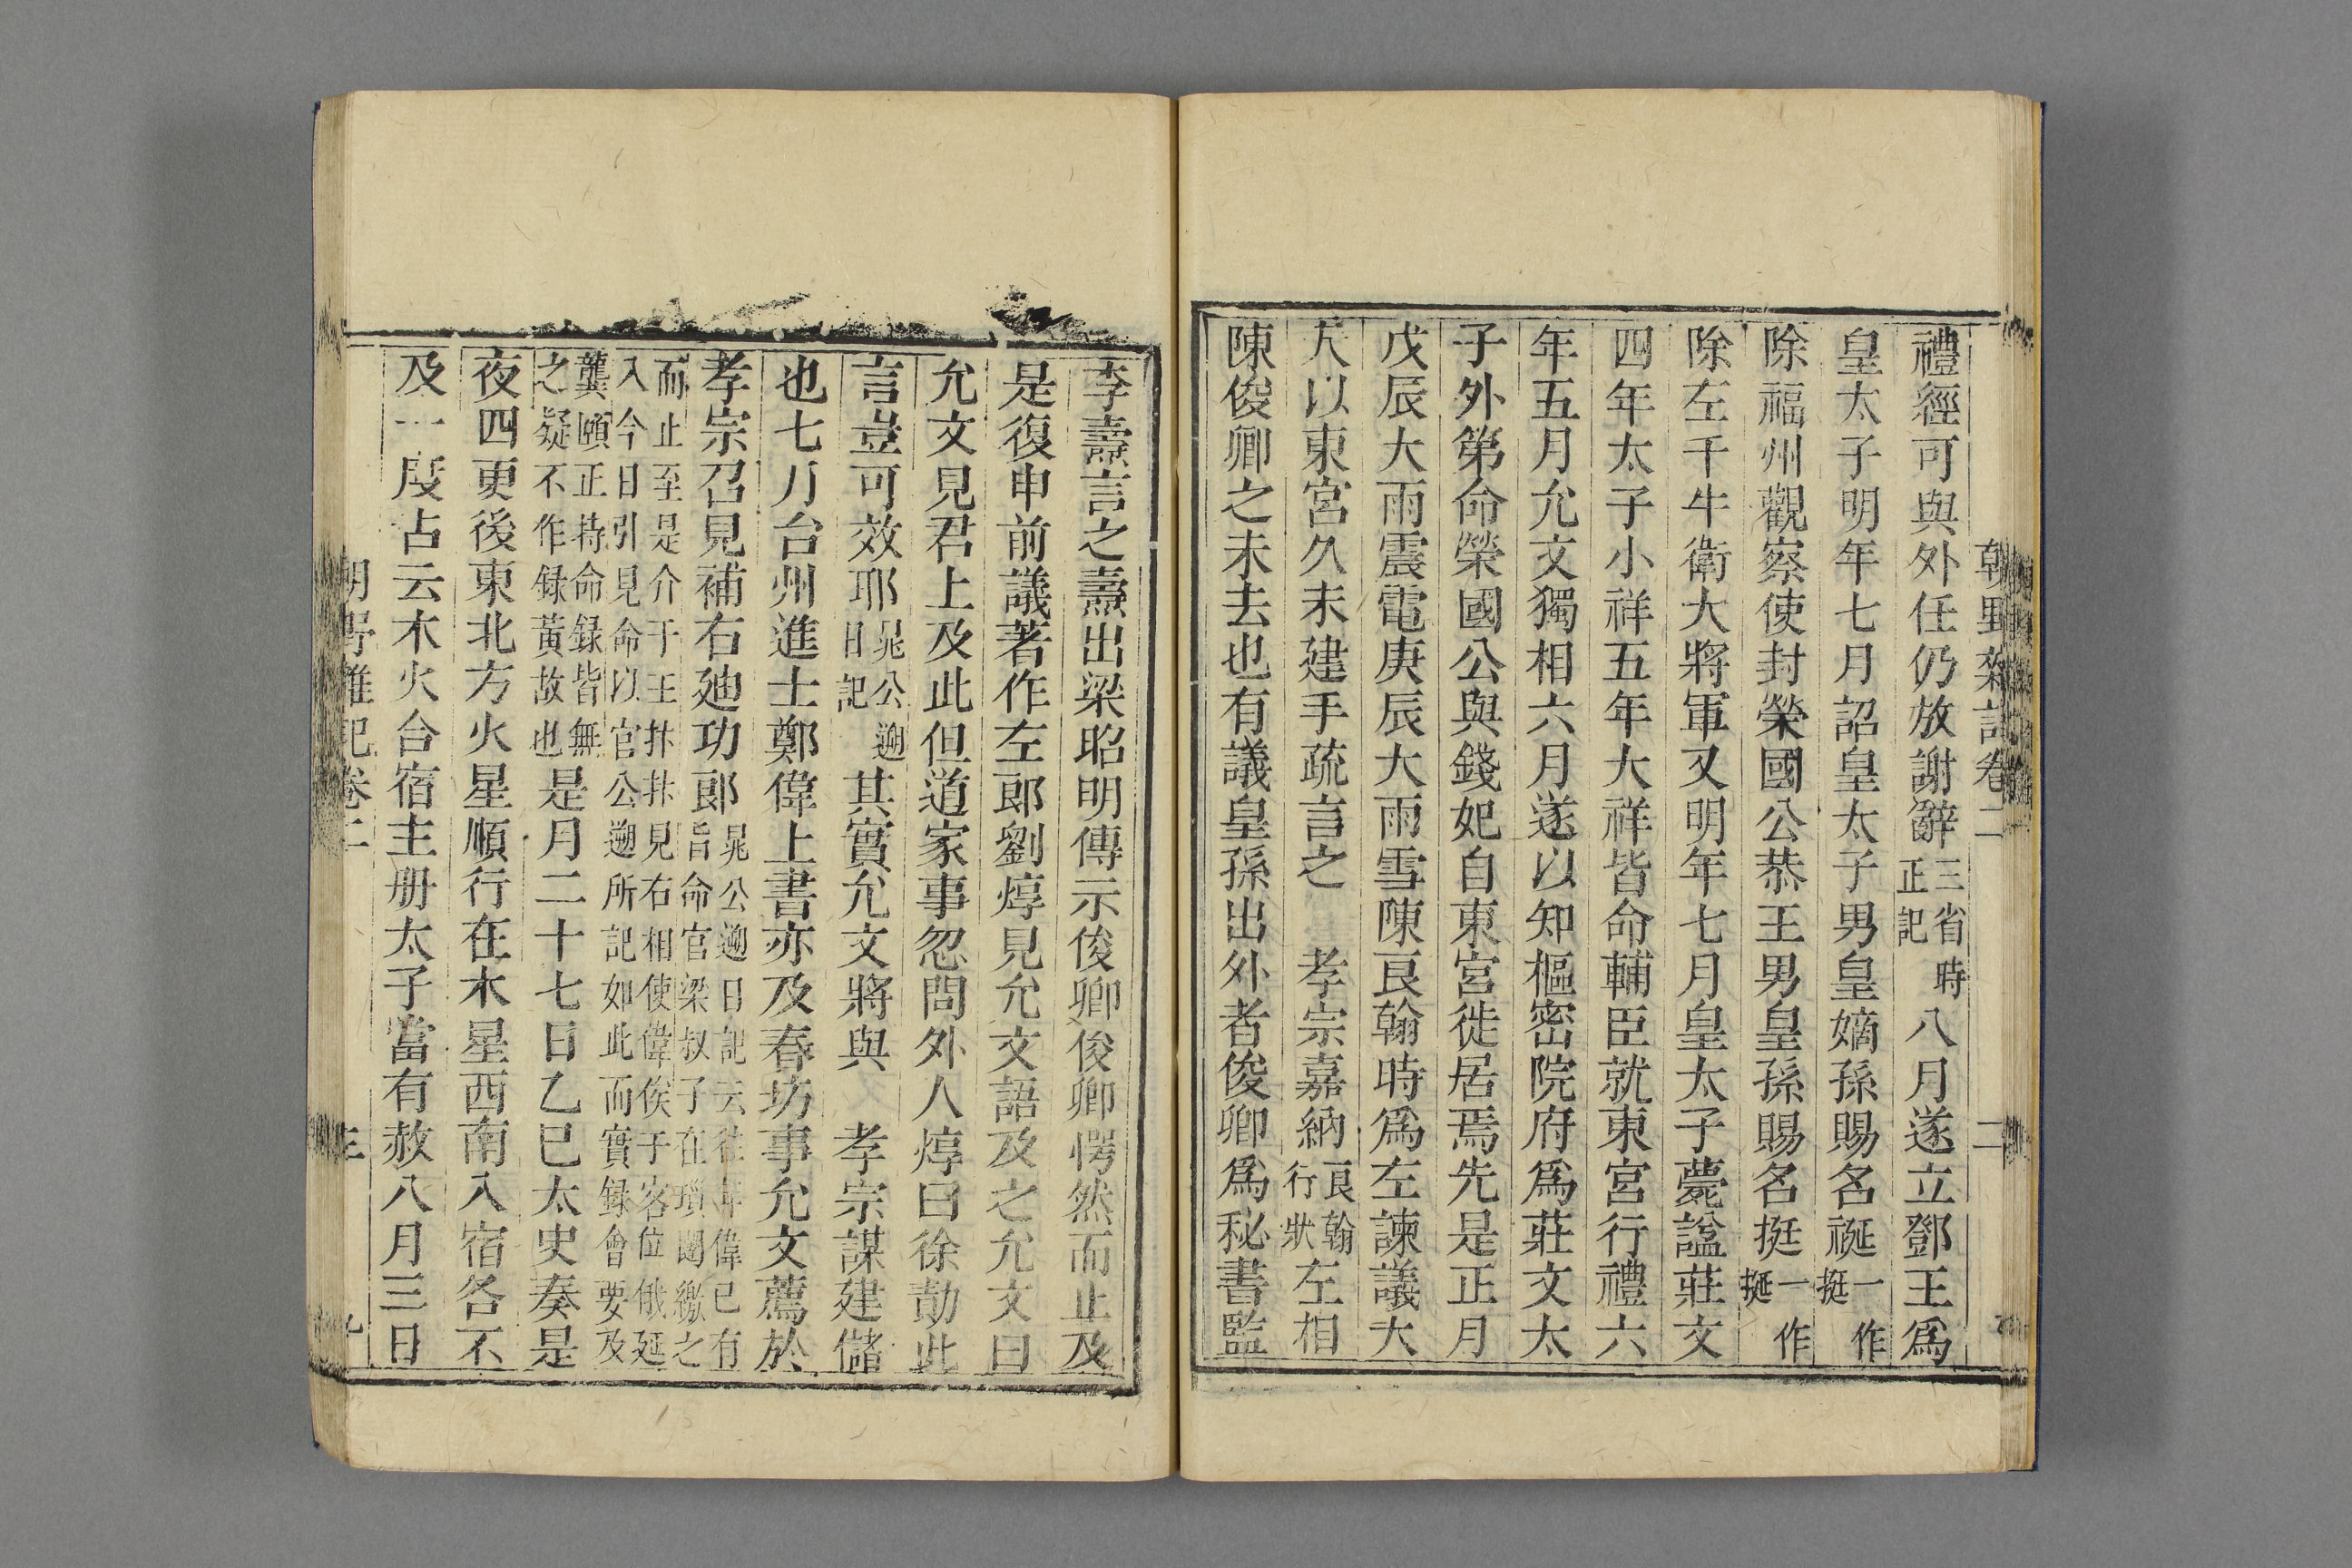 朝野雜記卷二 二
禮經可與外任仍放謝辭三省時正記八月遂立鄧王爲
皇太子明年七月詔皇太子男皇嫡孫賜名𧙗一作挺
除福州觀察使封榮國公恭王男皇孫賜名挺一作挻
除左千牛衛大將軍又明年七月皇太子薨諡莊文
四年太子小祥五年大祥皆命輔臣就東宮行禮六
年五月允文獨相六月遂以知樞密院府爲莊文太
子外第命榮國公與錢妃自東宮徙居焉先是正月
戊辰大雨震電庚辰大雨雪陳良翰時爲左諫議大
夫以東宮久未建手疏言之 孝宗嘉納良翰行狀左相
陳俊卿之未去也有議皇孫出外者俊卿爲秘書監
李燾言之燾出梁昭明傳示俊卿俊卿愕然而止及
是復申前議著作左郎劉焞見允文語及之允文曰
允文見君上及此但道家事忽問外人焞曰徐勣此
言豈可效耶晁公遡日記其實允文將與 孝宗謀建儲
也七月台州進士鄭偉上書亦及春坊事允文薦於
孝宗召見補右廸功郎晁公遡日記云往年偉已有旨命官梁叔子在瑣闥繳之
而止至是介于王抃抃見右相使偉俟于客位俄延入今日引見命以官公遡所記如此而實録會要及
龔頤正持命録皆無之疑不作録黃故也是月二十七日乙巳太史奏是
夜四更後東北方火星順行在木星西南入宿各不
及一度占云木火合宿主册太子當有赦八月三日
朝野雜記卷二 三